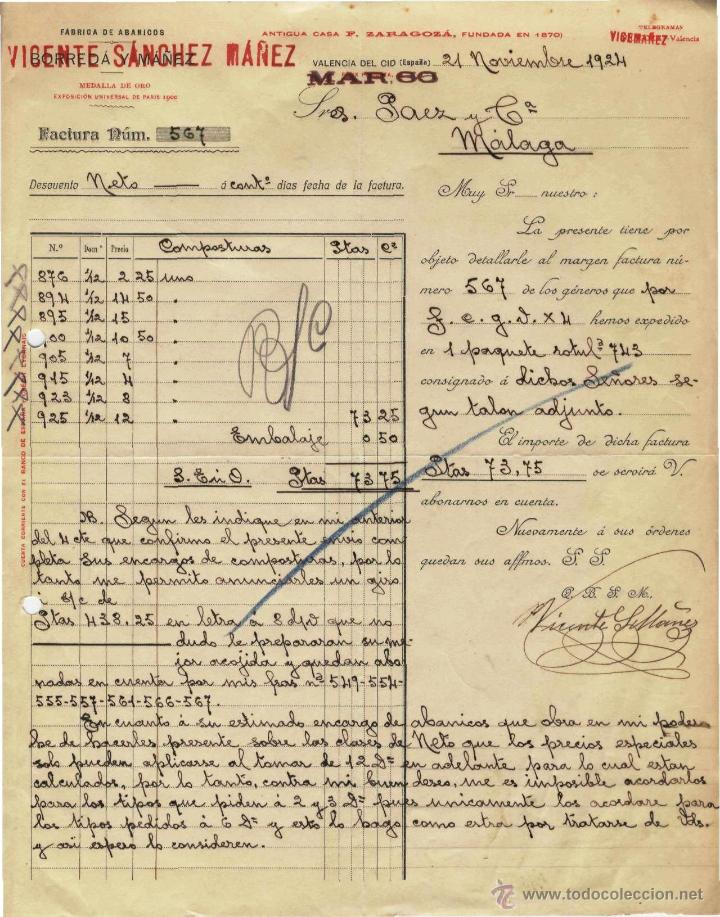 FÁBRICA DE ABANICOS
VICENTE SÁNCHEZ MÁÑEZ
BORREDÁ Y MÁÑEZ
MEDALLA DE ORO
EXPOSICIÓN UNIVERSAL DE PARIS 1900
ANTIGUA CASA F. ZARAGOZÁ, FUNDADA EN 1870)
TELEGRAMAS
VICEMAÑEZ-Valencia
VALENCIA DEL CID (España) 21 Noviembre 1924
MAR 66
Factura Núm. 567
Srs. Paez y Cª
Málaga
Descuento Neto á contº días fecha de la factura.
Muy Sr nuestro:
La presente tiene por
objeto detallarle al margen factura nú-
mero 567 de los géneros que por
g. e. g. v. x 4 hemos expedido
en 1 paquete rotulº 743
consignado á dichos Señores se-
gun talon adjunto.
El importe de dicha factura
Ptas 73,75 se servirá V.
abonarnos en cuenta.
Nuevamente á sus órdenes
quedan sus affmos. S. S.
Q. B. S. M.
Vicente S. Máñez
N.º Docn.ª Precio Composturas Ptas Cs
876 1/12 2 25 uno
894 1/12 14 50 "
895 1/12 15 "
900 1/12 10 50 "
905 1/12 7 "
915 1/12 4 "
923 1/12 8 "
925 1/12 12 " 73 25
Embalaje 0 50
S. E. ú O. Ptas 73 75
B/C
CUENTA CORRIENTE CON EL BANCO DE ESPAÑA
NB. Segun les indique en mi anterior
del 4 cte que confirmo el presente envio com-
pleta sus encargos de composturas, por lo
tanto me permito anunciarles un giro
s/c de
Ptas 438,25 en letra á 8 d/v que no
dudo le prepararan su me-
jor acojida y quedan abo-
nadas en cuenta por mis fras nº 549-554-
555-557-561-566-567.
En cuanto á su estimado encargo de abanicos que obra en mi poder
he de hacerles presente sobre las clases de Neto que los precios especiales
solo pueden aplicarse al tomar de 12 Dª en adelante para lo cual estan
calculados, por lo tanto, contra mi buen deseo, me es imposible acordarlos
para los tipos que piden á 2 y 3 Dª pues unicamente los acordare para
los tipos pedidos á 6 Dª y esto lo hago como estra por tratarse de Vds.
y asi espero lo consideren.
www.todocoleccion.net